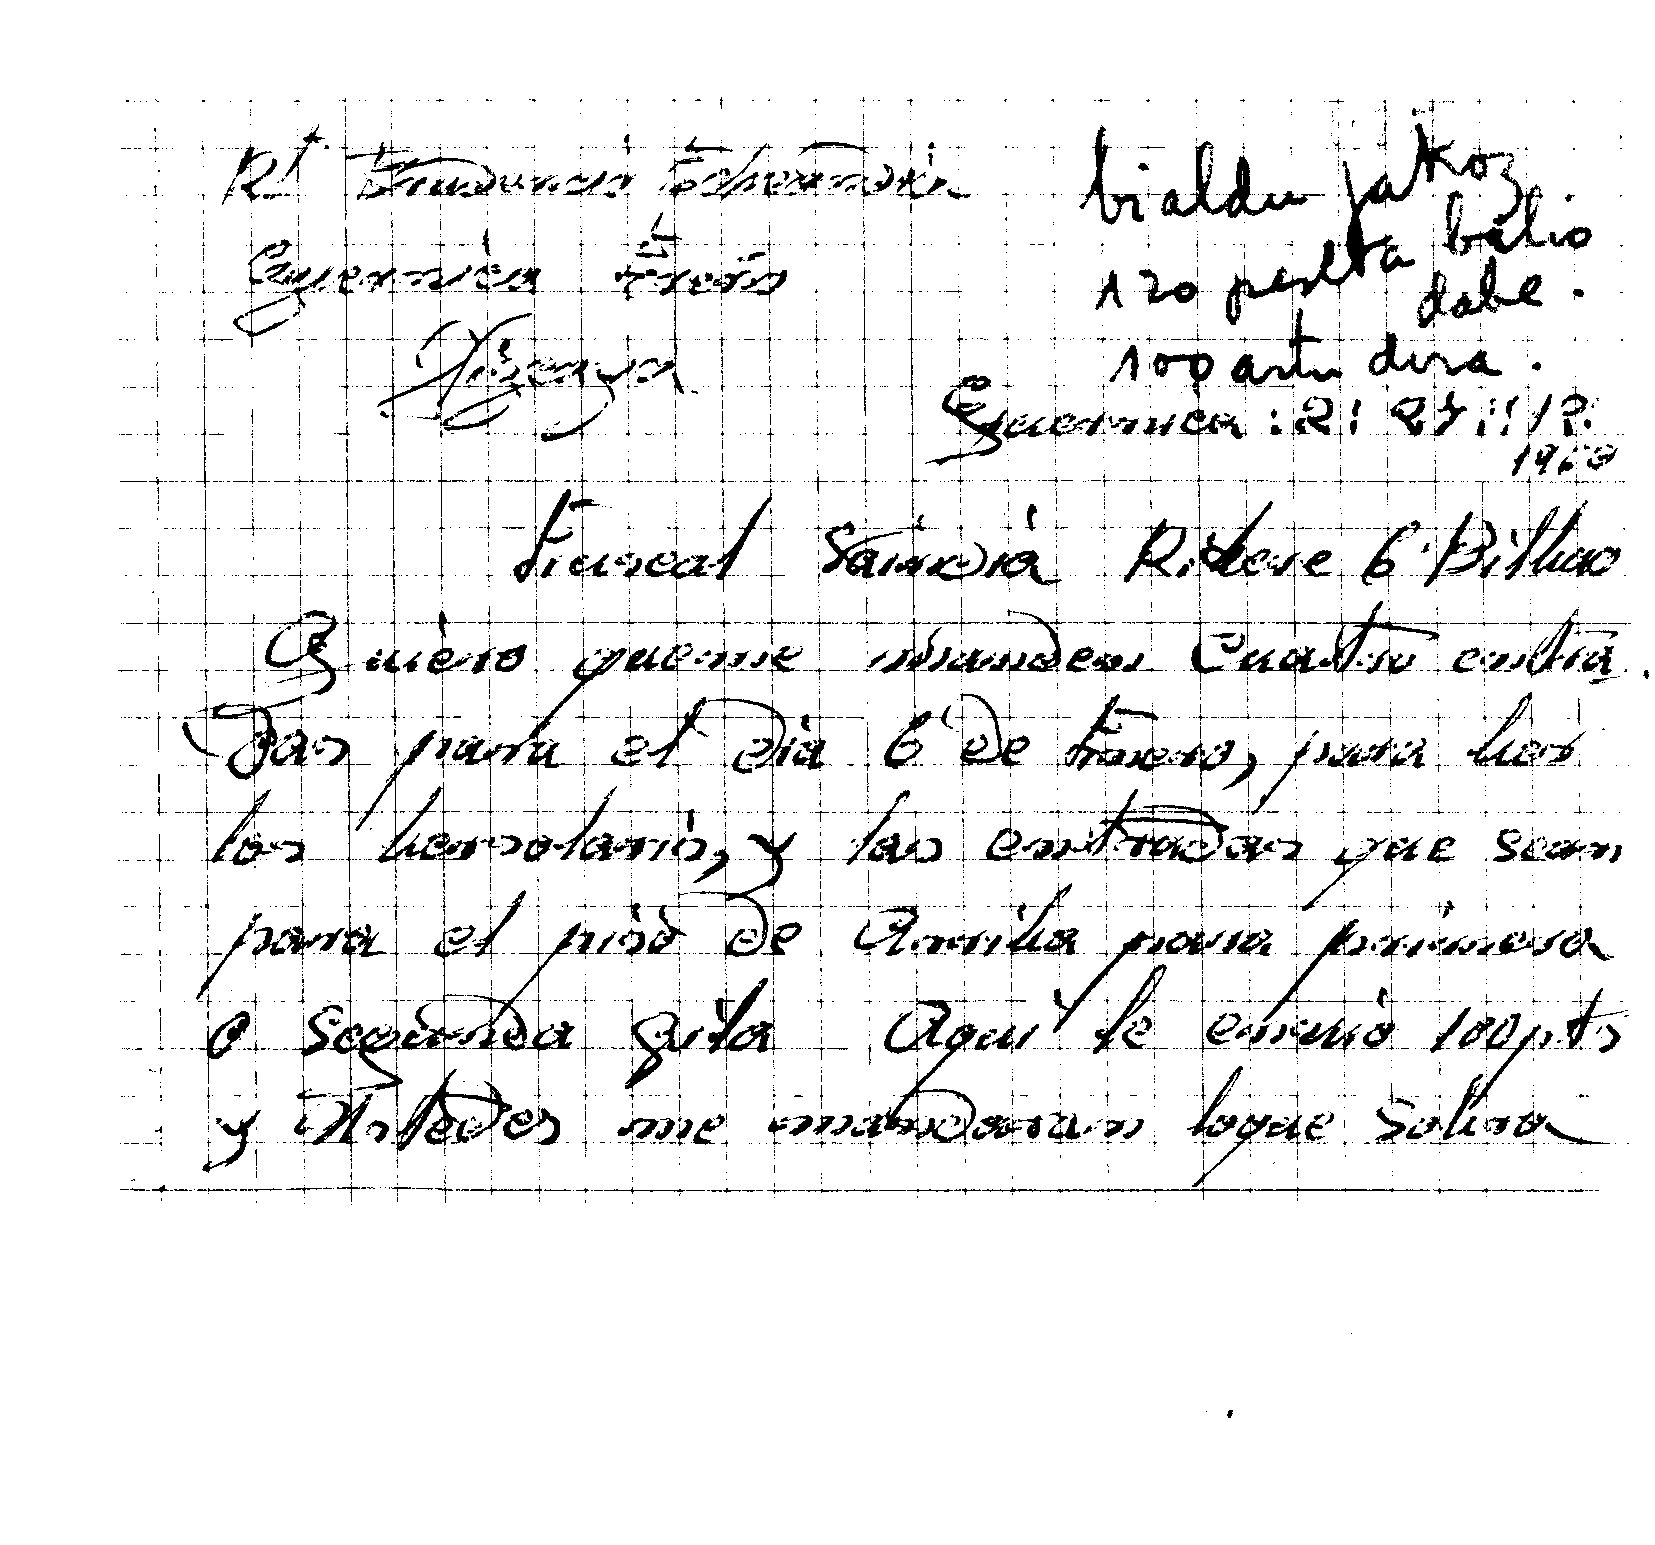 Rt
Guernica
Vizcaya
bialdu jakoz
120 pezeta balio
dabe.
100 artu dira.
Guernica : 2: 27 :: 12:
1960
Ribera 6 Bilbao
Quiero queme manden Cuatro entra
das para el dia 6 de Enero, para ber
los bersolaris, y las entradas que sean
para el piso de Arriba para primera
o segunda guila Aqui le envio 100 pts
y Ustedes me mandaran loque sobra